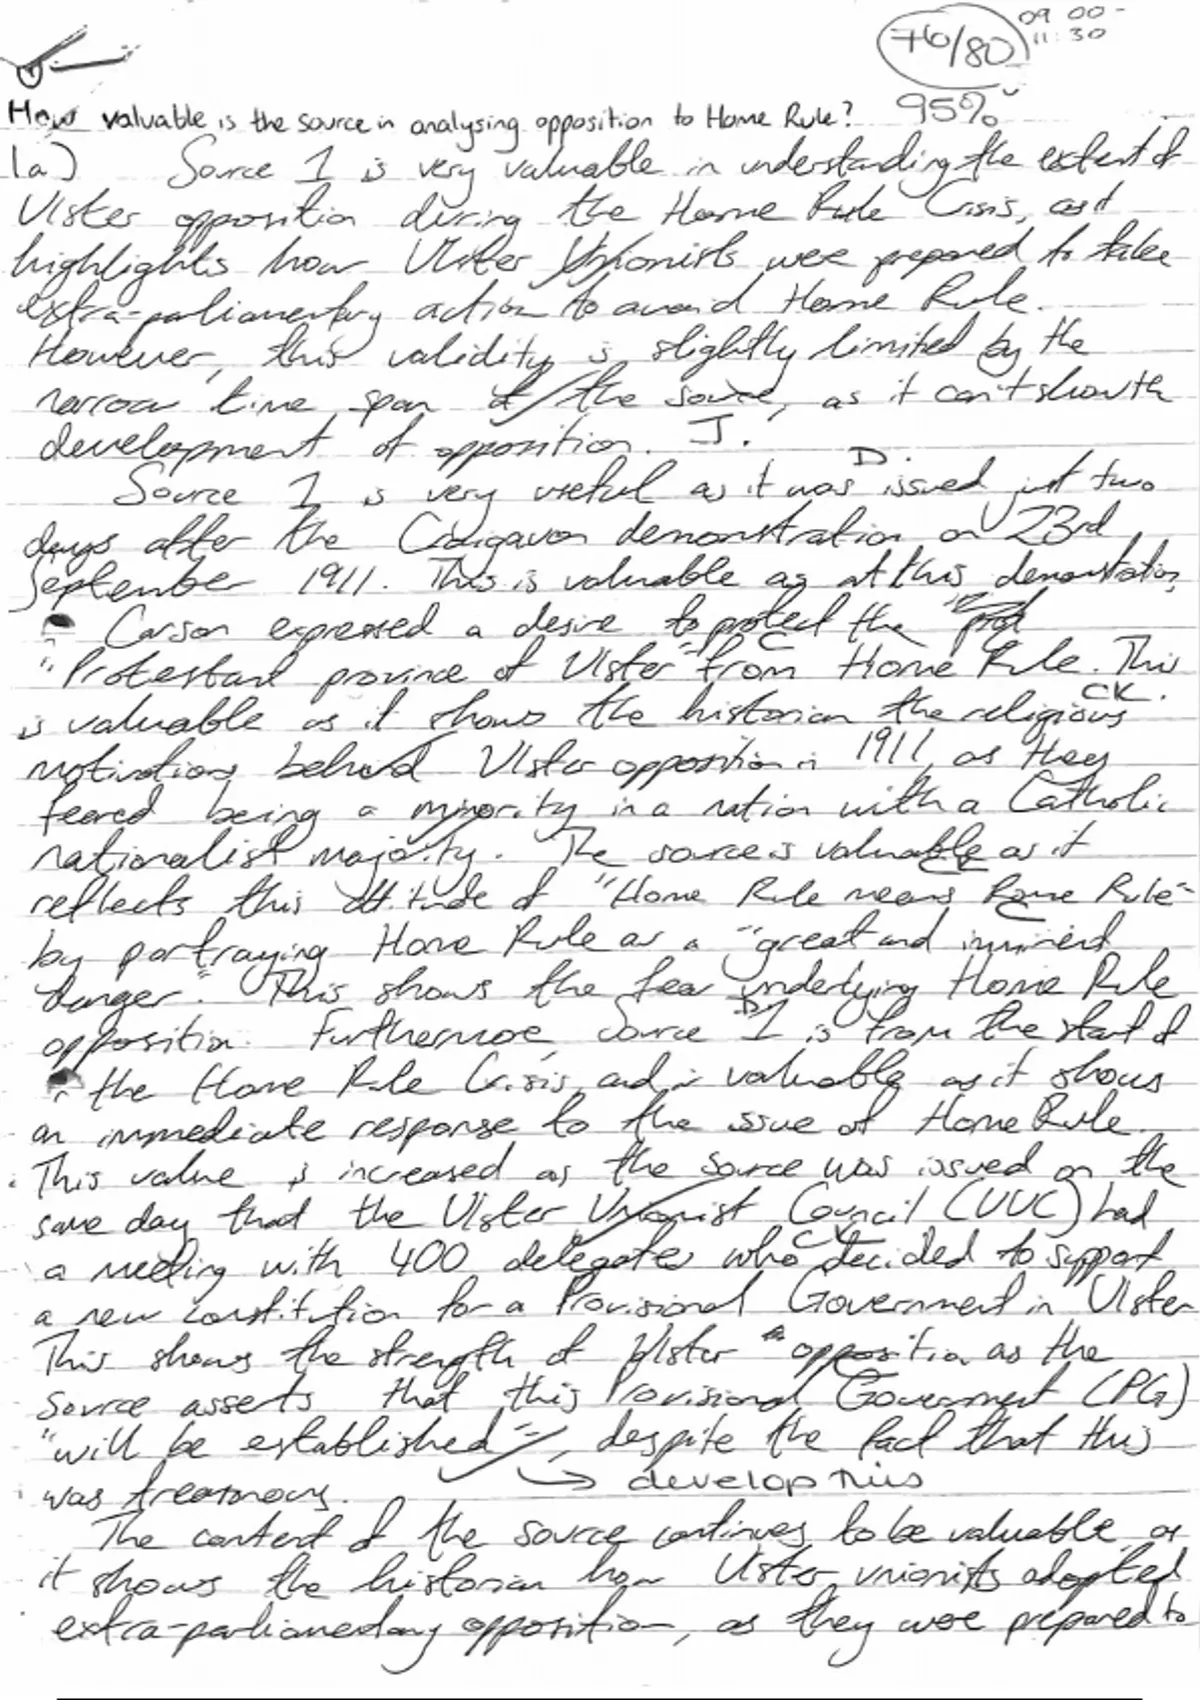 76/80
09 00 -
11:30
95%
How valuable is the source in analysing opposition to Home Rule?
1a) Source 1 is very valuable in understanding the extent of
Ulster opposition during the Home Rule Crisis, as it
highlights how Ulster Unionists were prepared to take
extra-parliamentary action to avoid Home Rule.
However, this validity is slightly limited by the
narrow time span of the source, as it can't show th
development of opposition. J.
D.
Source 1 is very useful as it was issued just two
days after the Craigavon demonstration on 23rd
September 1911. This is valuable as at this demonstration,
Carson expressed a desire to protect the
"Protestant province of Ulster" from Home Rule. This
CK.
is valuable as it shows the historian the religious
motivations behind Ulster opposition in 1911, as they
feared being a minority in a nation with a Catholic
nationalist majority. The source is valuable as it
reflects this attitude of "Home Rule means Rome Rule"
by portraying Home Rule as a "great and imminent
danger". This shows the fear underlying Home Rule
opposition. Furthermore, Source 1 is from the start of
the Home Rule Crisis, and is valuable as it shows
an immediate response to the issue of Home Rule.
This value is increased as the source was issued on the
same day that the Ulster Unionist Council (UUC) had
a meeting with 400 delegates who decided to support
a new constitution for a Provisional Government in Ulster
This shows the strength of Ulster opposition as the
Source asserts that this Provisional Government (PG)
"will be established", despite the fact that this
was treasonous. → develop this
The content of the source continues to be valuable, as
it shows the historian how Ulster unionists adopted
extra-parliamentary opposition, as they were prepared to